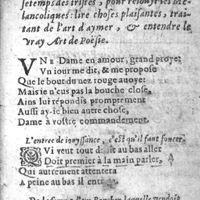 setemps des tristes, pour resiouyr les me-
lancoliques: lire choses plaisantes, trai-
tant de l'art d'aymer, & entendre le
vray Art de Poësie.
VNe Dame en amour, grand proye
Vn iour me dit, & me propose
Que le bout du nez rouge auoye:
Mais ie n'eus pas la bouche close,
Ains luy respondis promptement
Aussi ay-ie bien autre chose,
Dame à vostre commandement.
L'entree de iouyssance, c'est qu'il faut foncer.
QVi veut tout droit au bas aller
Doit premier à la main parler,
Qui autrement attentera
A peine au bas il